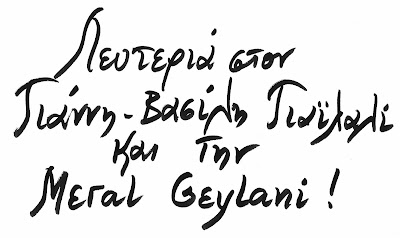 Λευτεριά στον
Γιάννη-Βασίλη Γιαϊλαλί
και την
Meral Geylani!